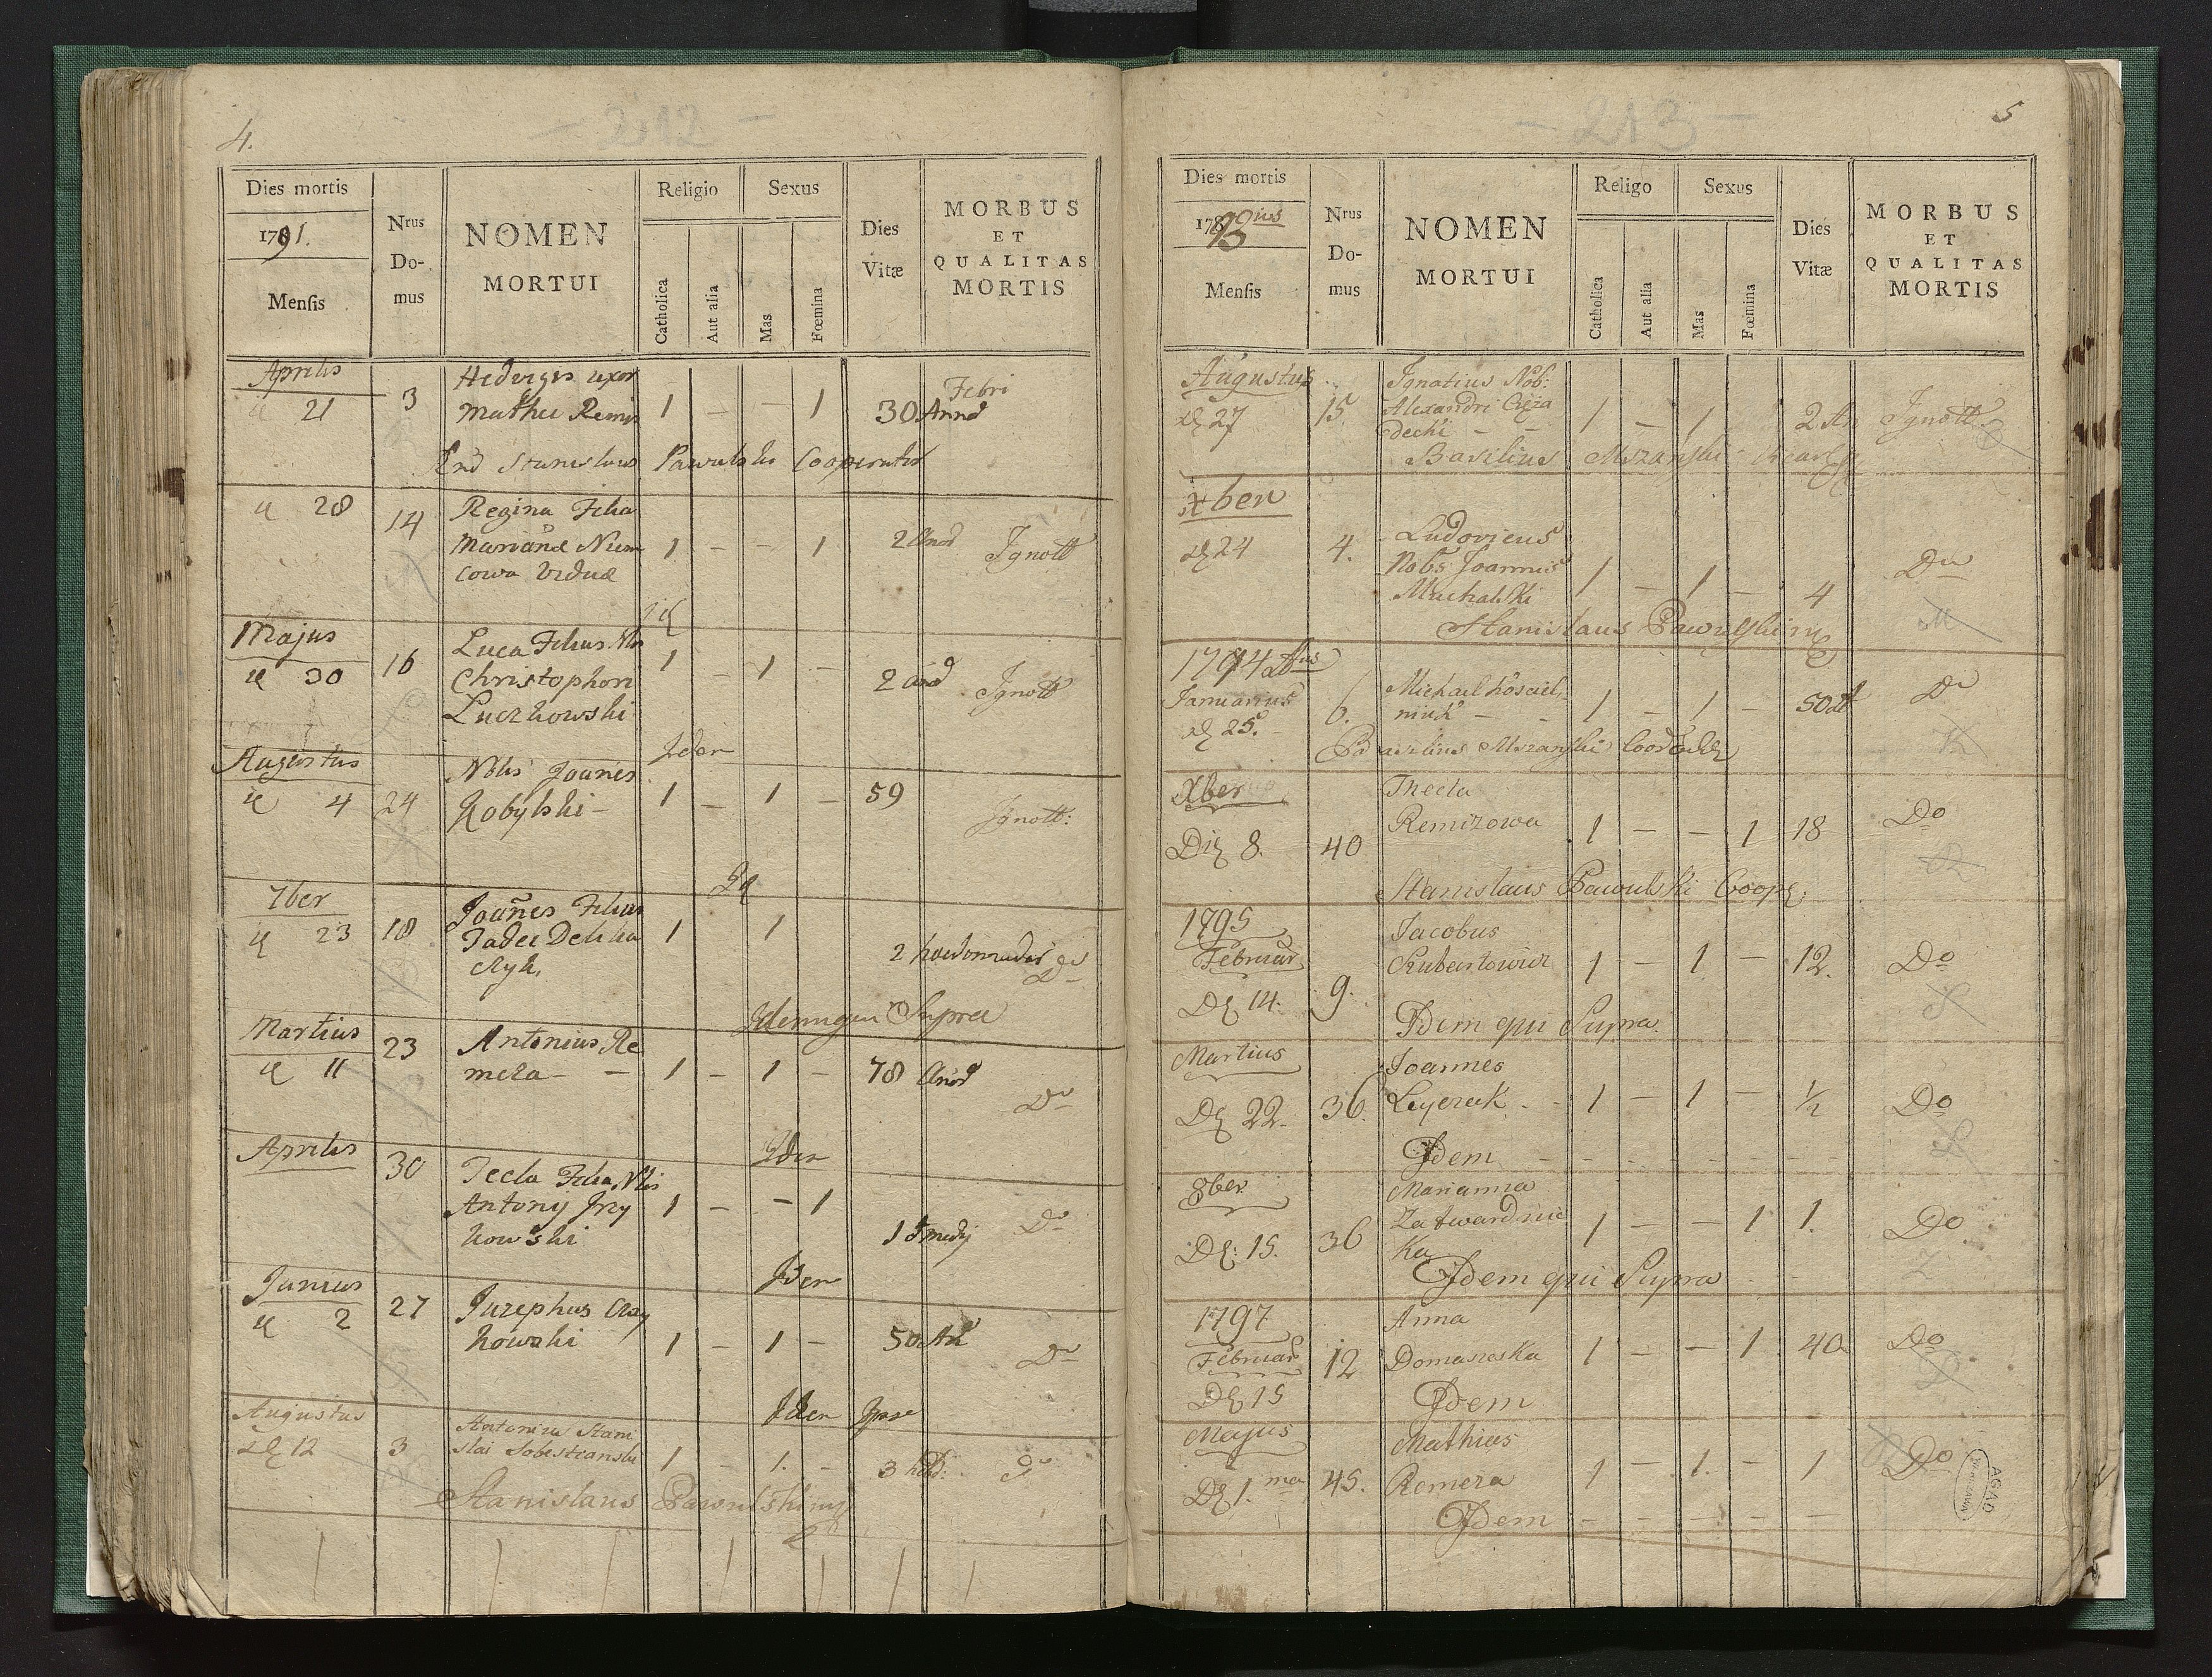 4.
- 212 -
Dies mortis
1791.
Mensis
Nrus
Do-
mus
NOMEN
MORTUI
Religio
Catholica
Aut alia
Sexus
Mas
Fœmina
Dies
Vitæ
MORBUS
ET
QUALITAS
MORTIS
Aprilis
21 3 Hedvigis uxor
Mathei Remis 1 - - 1 30 Annd Febri
Stanislaus Pawulski Cooperator
28 14 Regina Filia
Marianæ Niem 1 - - 1 2 Ignott
cowa Viduæ
Majus
30 16 Luca Filius Nlis
Christophori 1 - 1 - 2 Ignott
Luczkowski
Idem
Augustus
4 24 Nblis Joanes
Kobylski - 1 - 1 - 59 Ignott:
7ber
23 18 Joañes Filius
Tadei 1 1 2
Idemque Supra
Martius
11 23 Antonius Re
meza - - 1 - 1 - 78 Do
Idem
Aprilis
30 Tecla Filia Nlis
Antonij 1 - - 1 1 Do
kowski
Idem
Junius
2 27 Jozephus
kowski 1 - 1 - 50 Do
Idem Ipse
Augustus
12 3 Antonius Stani
slai Sobestianski 1 - 1. - 3 hebd: Do
Stanislaus Pawulski
5
- 213 -
Dies mortis
1793ius
Mensis
Nrus
Do-
mus
NOMEN
MORTUI
Religo
Catholica
Aut alia
Sexus
Mas
Fœmina
Dies
Vitæ
MORBUS
ET
QUALITAS
MORTIS
Augustus
27 15 Ignatius Nob:
Alexandri
decki - - 1 - 1 2 An Ignott
Basilius Mszański
Xber
24 4. Ludovicus
Nobs Joannis
Michalski 1 - 1 - 4 Do
Stanislaus Pawulski
1794
Januarius
25. 6. Michael Kosciel
niuk - - 1 - 1 - 50 Do
Basilius Mszański
Xber
Die 8. 40 Thecla
Remizowa 1 - - 1 18 Do
Stanislaus Pawulski Coope
1795
Februar
D 14. 9. Jacobus
Kubertowicz 1 - 1 - 12. Do
Idem qui Supra.
Martius
D 22. 36. Joannes
Leyczak - - 1 - 1 - ½ Do
Idem - - - - - -
8ber
D: 15. 36 Marianna
Zatwardnic
Ka 1 - - 1 1. Do
Idem qui Supra
1797
Februar
D 15 12 Anna
Domaseska 1 - - 1 40 Do
Idem
Majus
D 1.ma 45. Mathias
Remeza 1 - 1. - 1 Do
Idem - - - - - -
AGAD
WARSZAWA